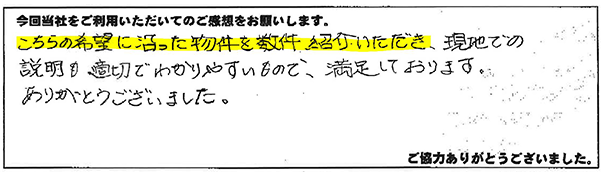 今回当社をご利用いただいてのご感想をお願いします。
こちらの希望に沿った物件を数件紹介いただき、現地での
説明も適切でわかりやすいもので、満足しております。
ありがとうございました。
ご協力ありがとうございました。